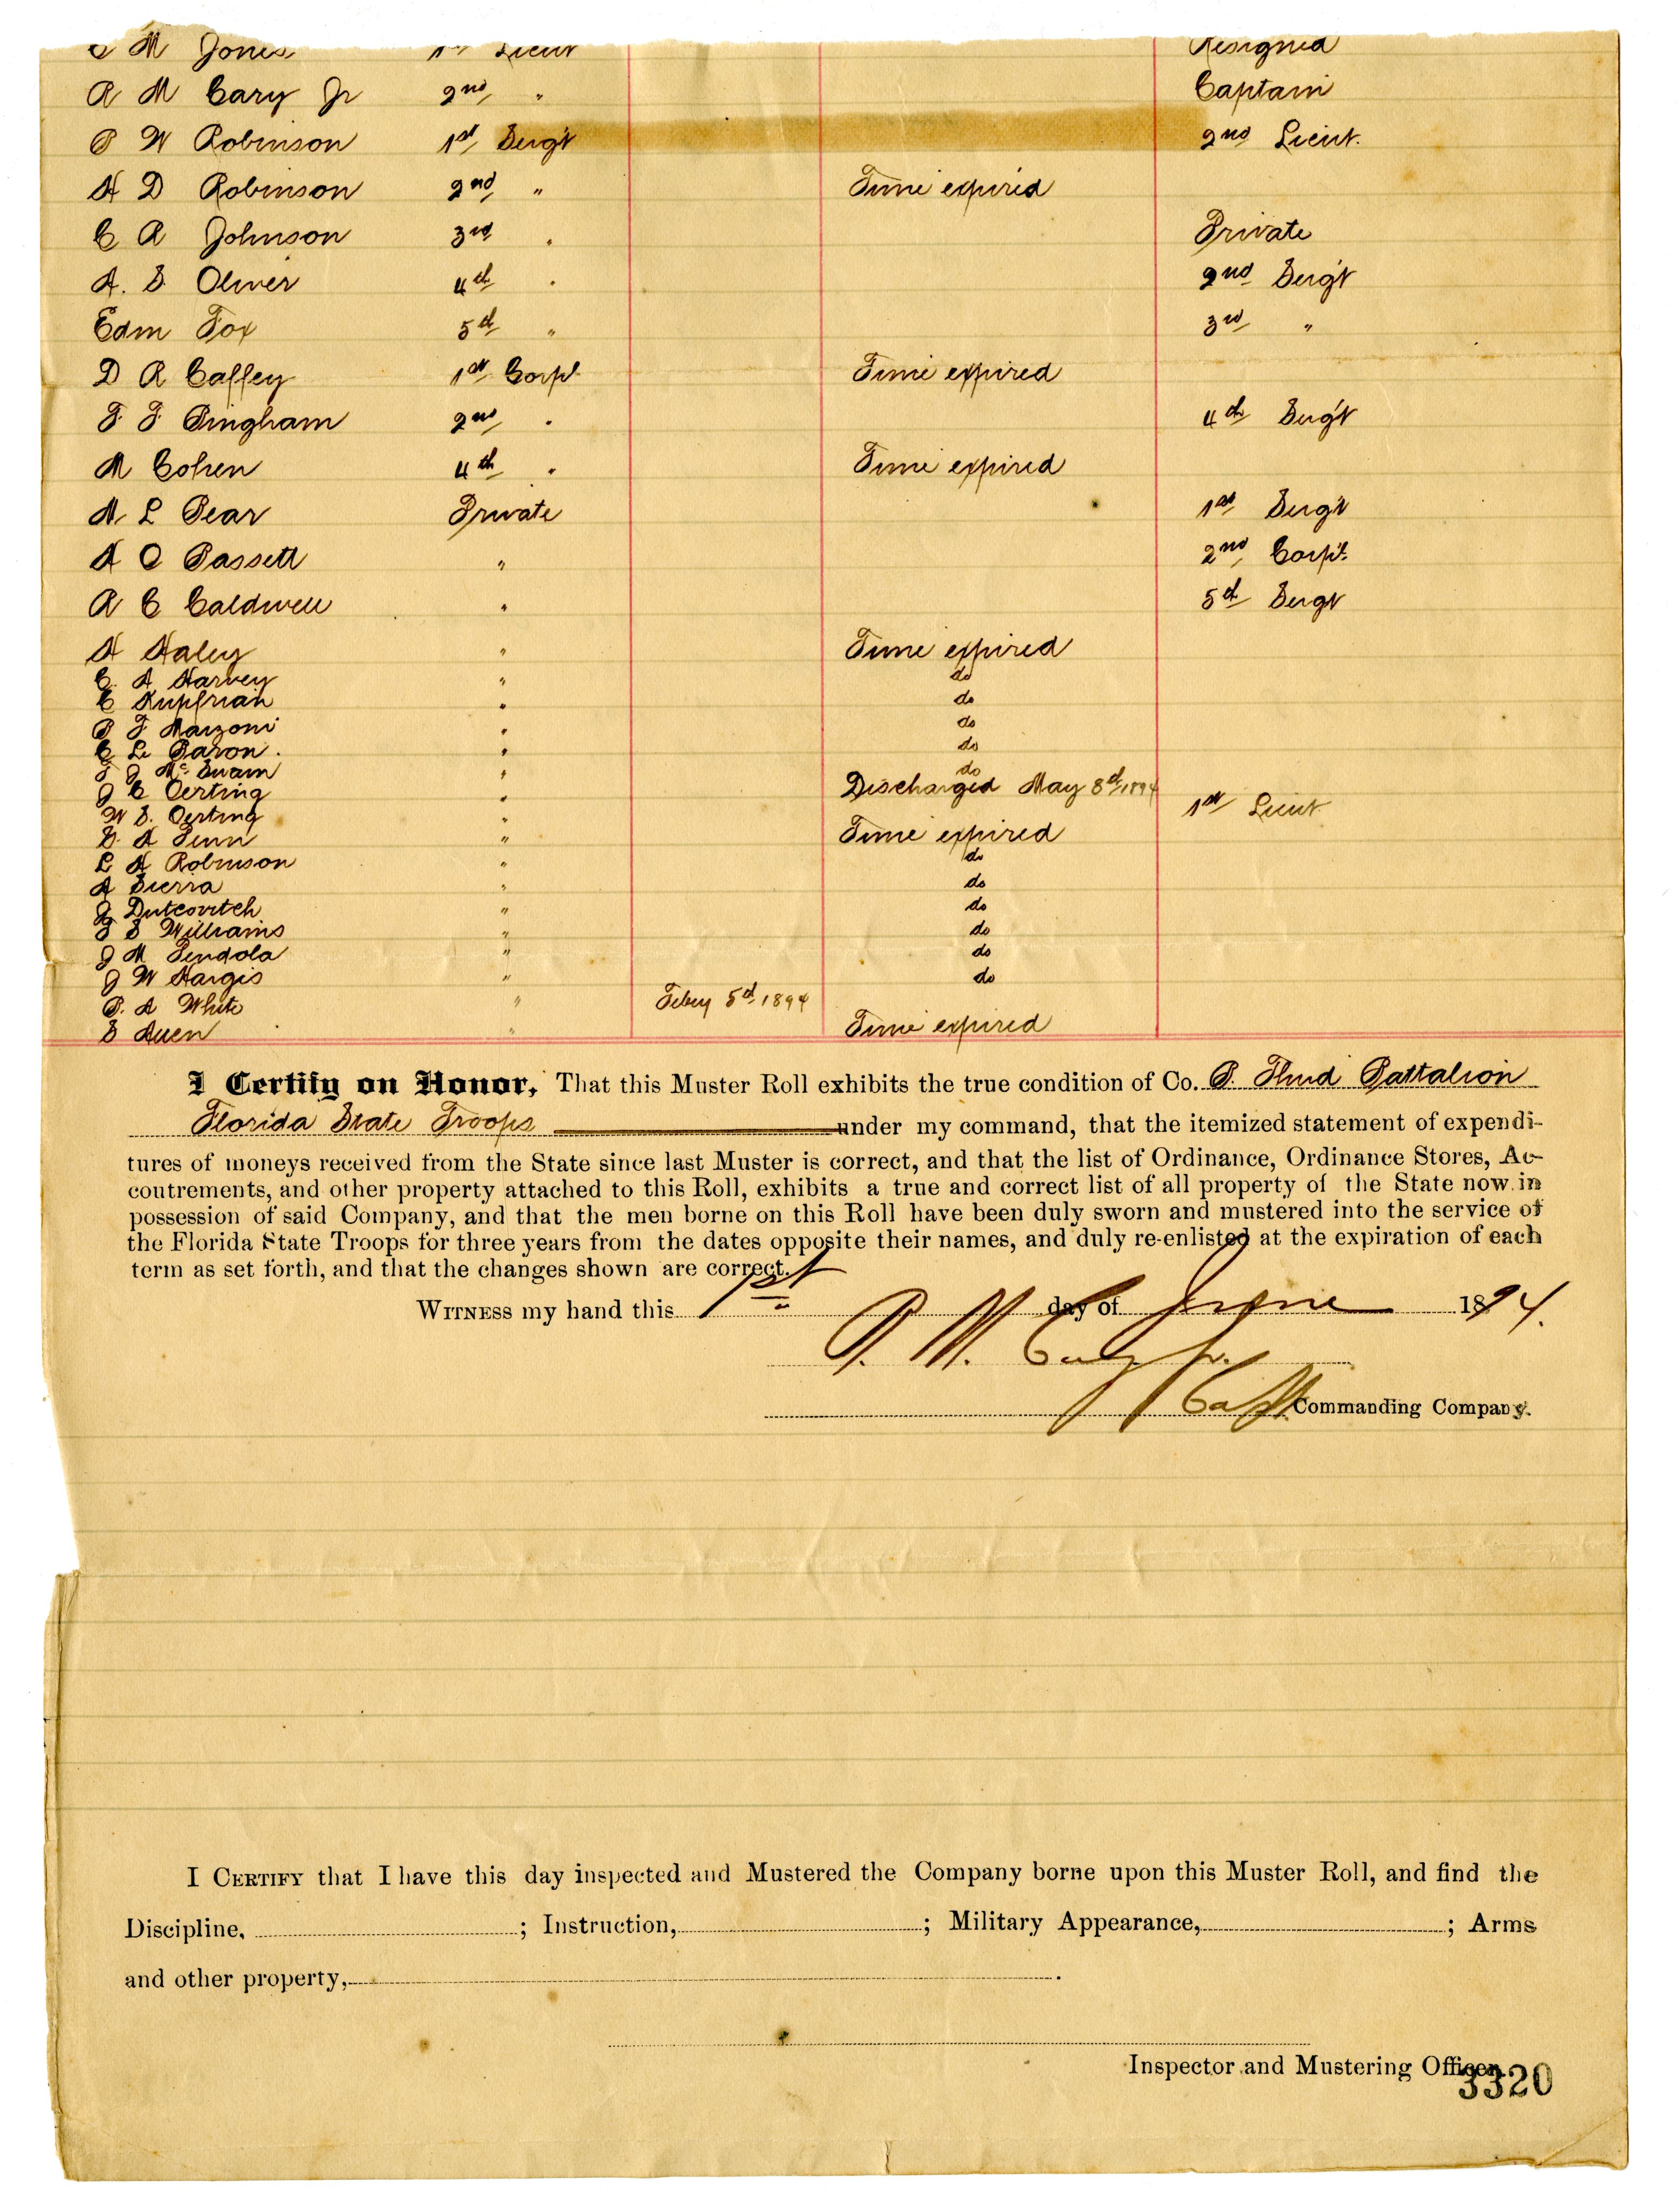 C M Jones 1st Lieut Resigned
R M Cary Jr 2nd " Captain
B W Robinson 1st Sergt 2nd Lieut.
H D Robinson 2nd " Time expired
C A Johnson 3rd " Private
A. S. Oliver 4th " 2nd Sergt
Edm Fox 5th " 3rd "
D R Caffey 1st Corpl Time expired
F. F. Bingham 2nd " 4th Sergt
M Cohen 4th " Time expired
M L Bear Private 1st Sergt
H O Bassett " 2nd Corpl.
R C Caldwell " 5th Sergt
H Haley " Time expired
C. H Harvey " do
C Kupfrian " do
B F Marzoni " do
C Le Baron. " do
F J Mc Swain " do
J C Oerting " Discharged May 8th 1894
W S. Oerting " 1st Lieut
S. A " Time expired
L H Robinson " do
A Sierra " do
J Dutcovitch " do
J S Williams " do
J M Pendola " do
J W Hargis " do
B. A White " Feby 5th 1894
S Auen " Time expired
I Certify on Honor, That this Muster Roll exhibits the true condition of Co. B. Third Battalion
Florida State Troops under my command, that the itemized statement of expendi-
tures of moneys received from the State since last Muster is correct, and that the list of Ordinance, Ordinance Stores, Ac-
coutrements, and other property attached to this Roll, exhibits a true and correct list of all property of the State now in
possession of said Company, and that the men borne on this Roll have been duly sworn and mustered into the service of
the Florida State Troops for three years from the dates opposite their names, and duly re-enlisted at the expiration of each
term as set forth, and that the changes shown are correct.
WITNESS my hand this 1st day of June 1894.
R. M. Cary Jr.
Capt. Commanding Company.
I CERTIFY that I have this day inspected and Mustered the Company borne upon this Muster Roll, and find the
Discipline, ; Instruction, ; Military Appearance, ; Arms
and other property, .
Inspector and Mustering Officer.
3320